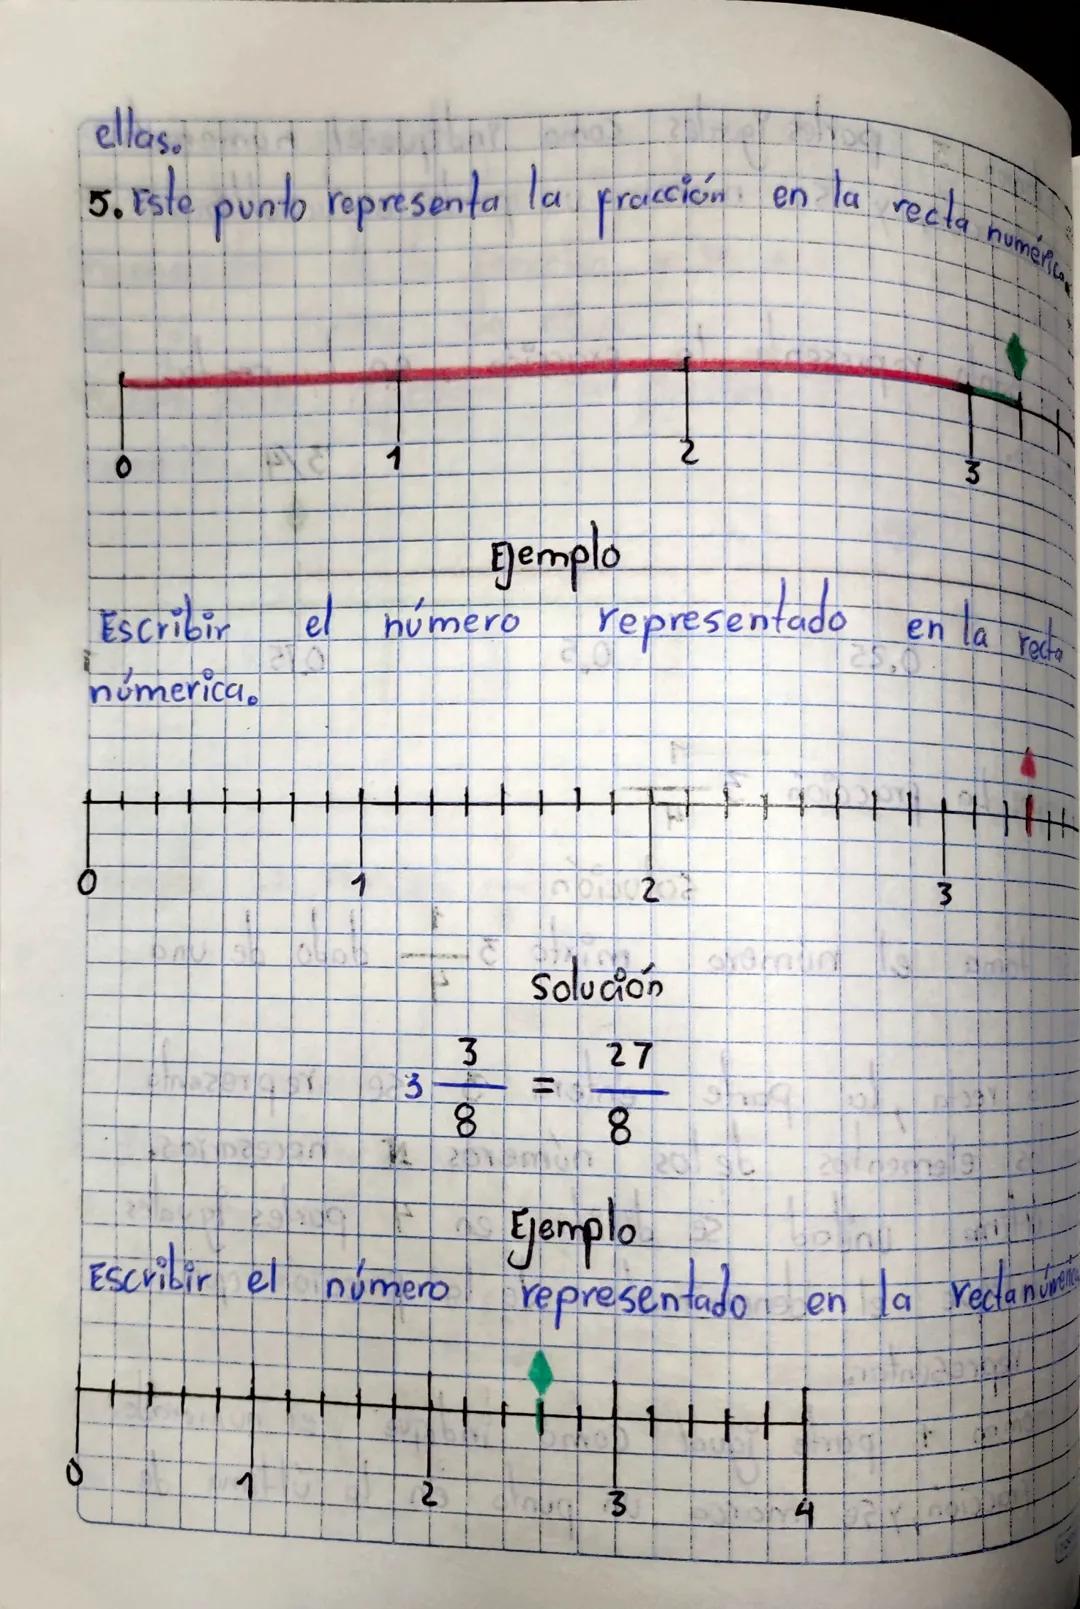 ellas.
5. Este punto representa la fracción en la recta numérica.
0 1 2 3
Ejemplo
Escribir el número representado en la recta
númerica.
0 1 2 3
Solución
3 3/8 = 27/8
Ejemplo
Escribir el número representado en la recta númerica
0 1 2 3 4